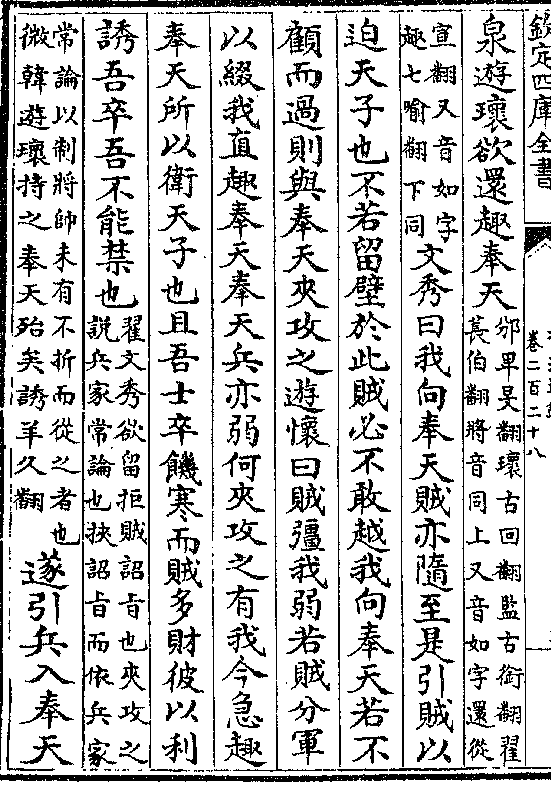 欽定四庫全書
卷二百二十八
泉遊瓌欲還趣奉天
邠畢旻翻瓌古回翻監古銜翻翟
萇伯翻將音同上又音如字還從
宣翻又音如字
趣七喻翻下同
文秀曰我向奉天賊亦隨至是引賊以
迫天子也不若留壁於此賊必不敢越我向奉天若不
顧而過則與奉天夾攻之遊懷曰賊彊我弱若賊分軍
以綴我直趣奉天奉天兵亦弱何夾攻之有我今急趣
奉天所以衛天子也且吾士卒饑寒而賊多財彼以利
誘吾卒吾不能禁也
翟文秀欲留拒賊詔旨也夾攻之
說兵家常論也挾詔旨而依兵家
常論以制將帥未有不折而從之者也
微韓遊瓌持之奉天殆矣誘羊久翻
遂引兵入奉天